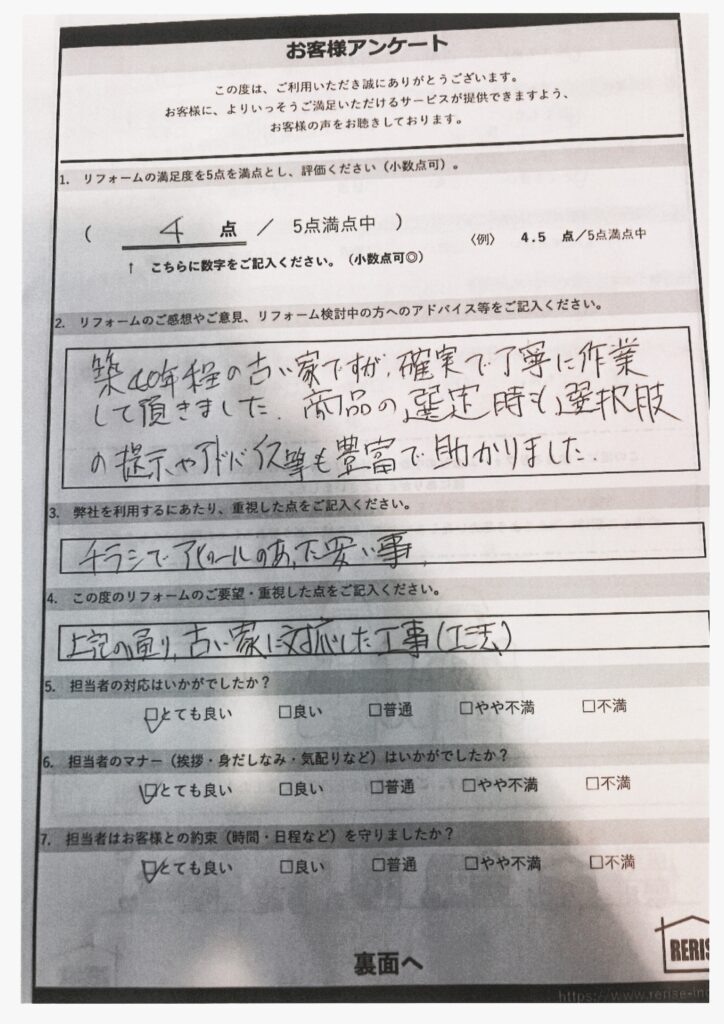 お客様アンケート
この度は、ご利用いただき誠にありがとうございます。
お客様に、よりいっそうご満足いただけるサービスが提供できますよう、
お客様の声をお聴きしております。
1. リフォームの満足度を5点を満点とし、評価ください（小数点可）。
（ 4 点 ／ 5点満点中 ）
〈例〉 4.5 点／5点満点中
↑ こちらに数字をご記入ください。（小数点可◎）
2. リフォームのご感想やご意見、リフォーム検討中の方へのアドバイス等をご記入ください。
築40年程の古い家ですが、確実で丁寧に作業
して頂きました。商品の選定時も選択肢
の提示やアドバイス等も豊富で助かりました。
3. 弊社を利用するにあたり、重視した点をご記入ください。
チラシでアピールのあった安い事。
4. この度のリフォームのご要望・重視した点をご記入ください。
上記の通り、古い家に対応した工事(工法)
5. 担当者の対応はいかがでしたか？
☑とても良い □良い □普通 □やや不満 □不満
6. 担当者のマナー（挨拶・身だしなみ・気配りなど）はいかがでしたか？
☑とても良い □良い □普通 □やや不満 □不満
7. 担当者はお客様との約束（時間・日程など）を守りましたか？
☑とても良い □良い □普通 □やや不満 □不満
裏面へ
RERIS
https://www.rerise-inc